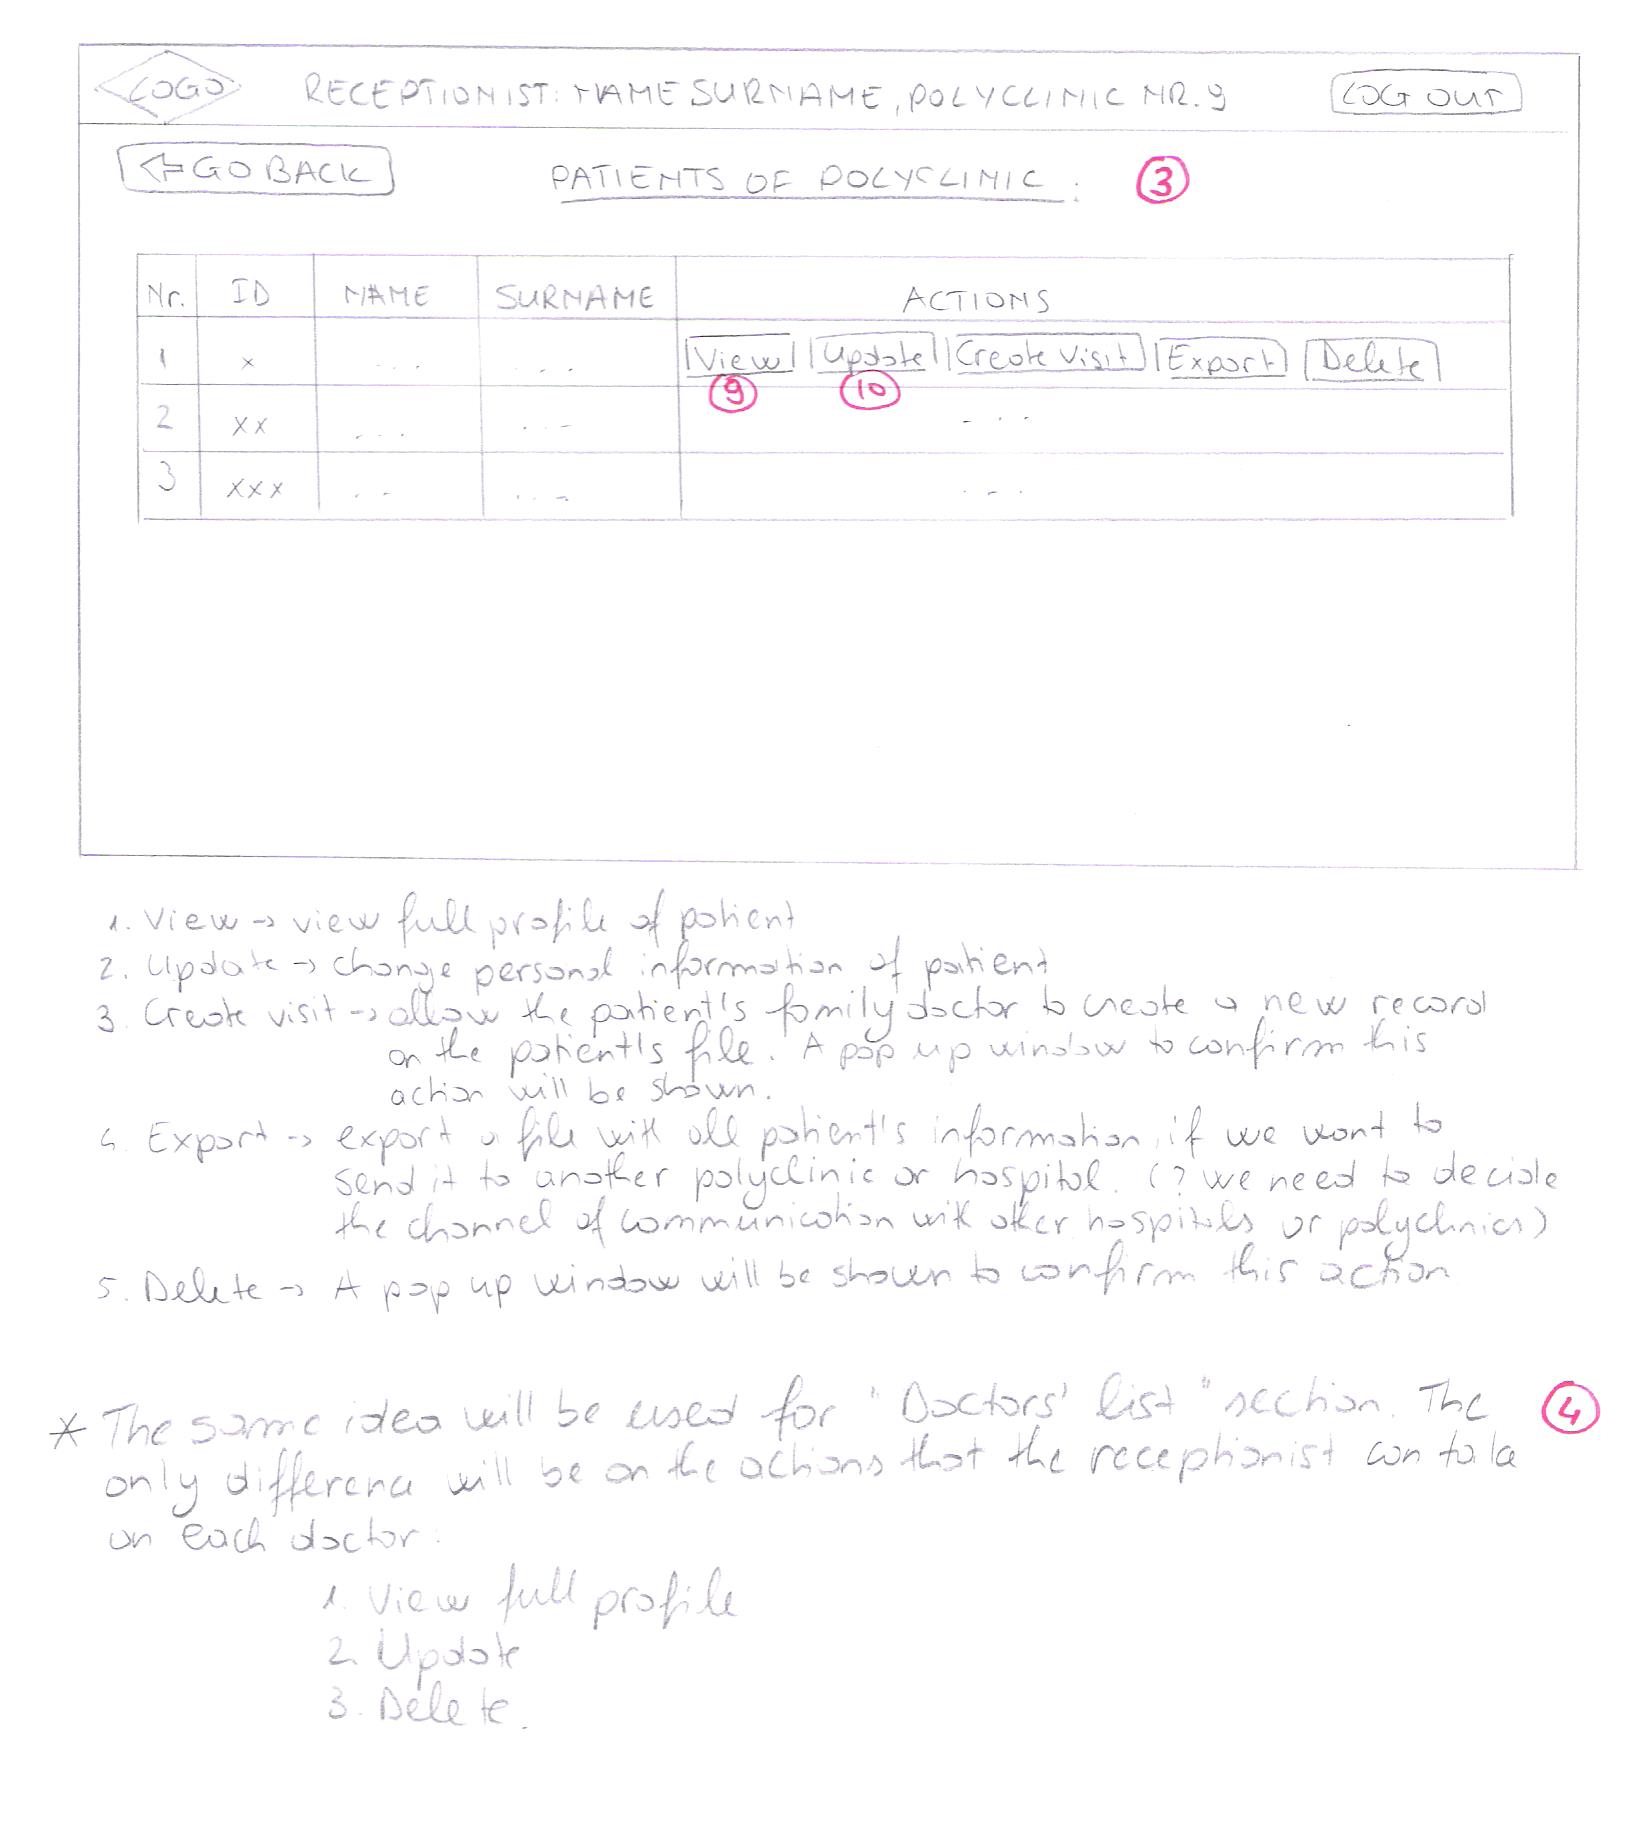 LOGO RECEPTIONIST: NAME SURNAME, POLYCLINIC NR. 9 LOG OUT
GO BACK PATIENTS OF POLYCLINIC : 3
Nr. ID NAME SURNAME ACTIONS
1 x ... ... View Update Create Visit Export Delete
9 10
2 xx ... ... ...
3 xxx .. ... ...
1. View → view full profile of patient
2. Update → change personal information of patient
3. Create visit → allow the patient's family doctor to create a new record
on the patient's file. A pop up window to confirm this
action will be shown.
4. Export → export a file with all patient's information, if we want to
send it to another polyclinic or hospital. (? we need to decide
the channel of communication with other hospitals or polyclinics)
5. Delete → A pop up window will be shown to confirm this action
* The same idea will be used for "Doctors' list" section. The 4
only difference will be on the actions that the receptionist can take
on each doctor:
1. View full profile
2. Update
3. Delete.